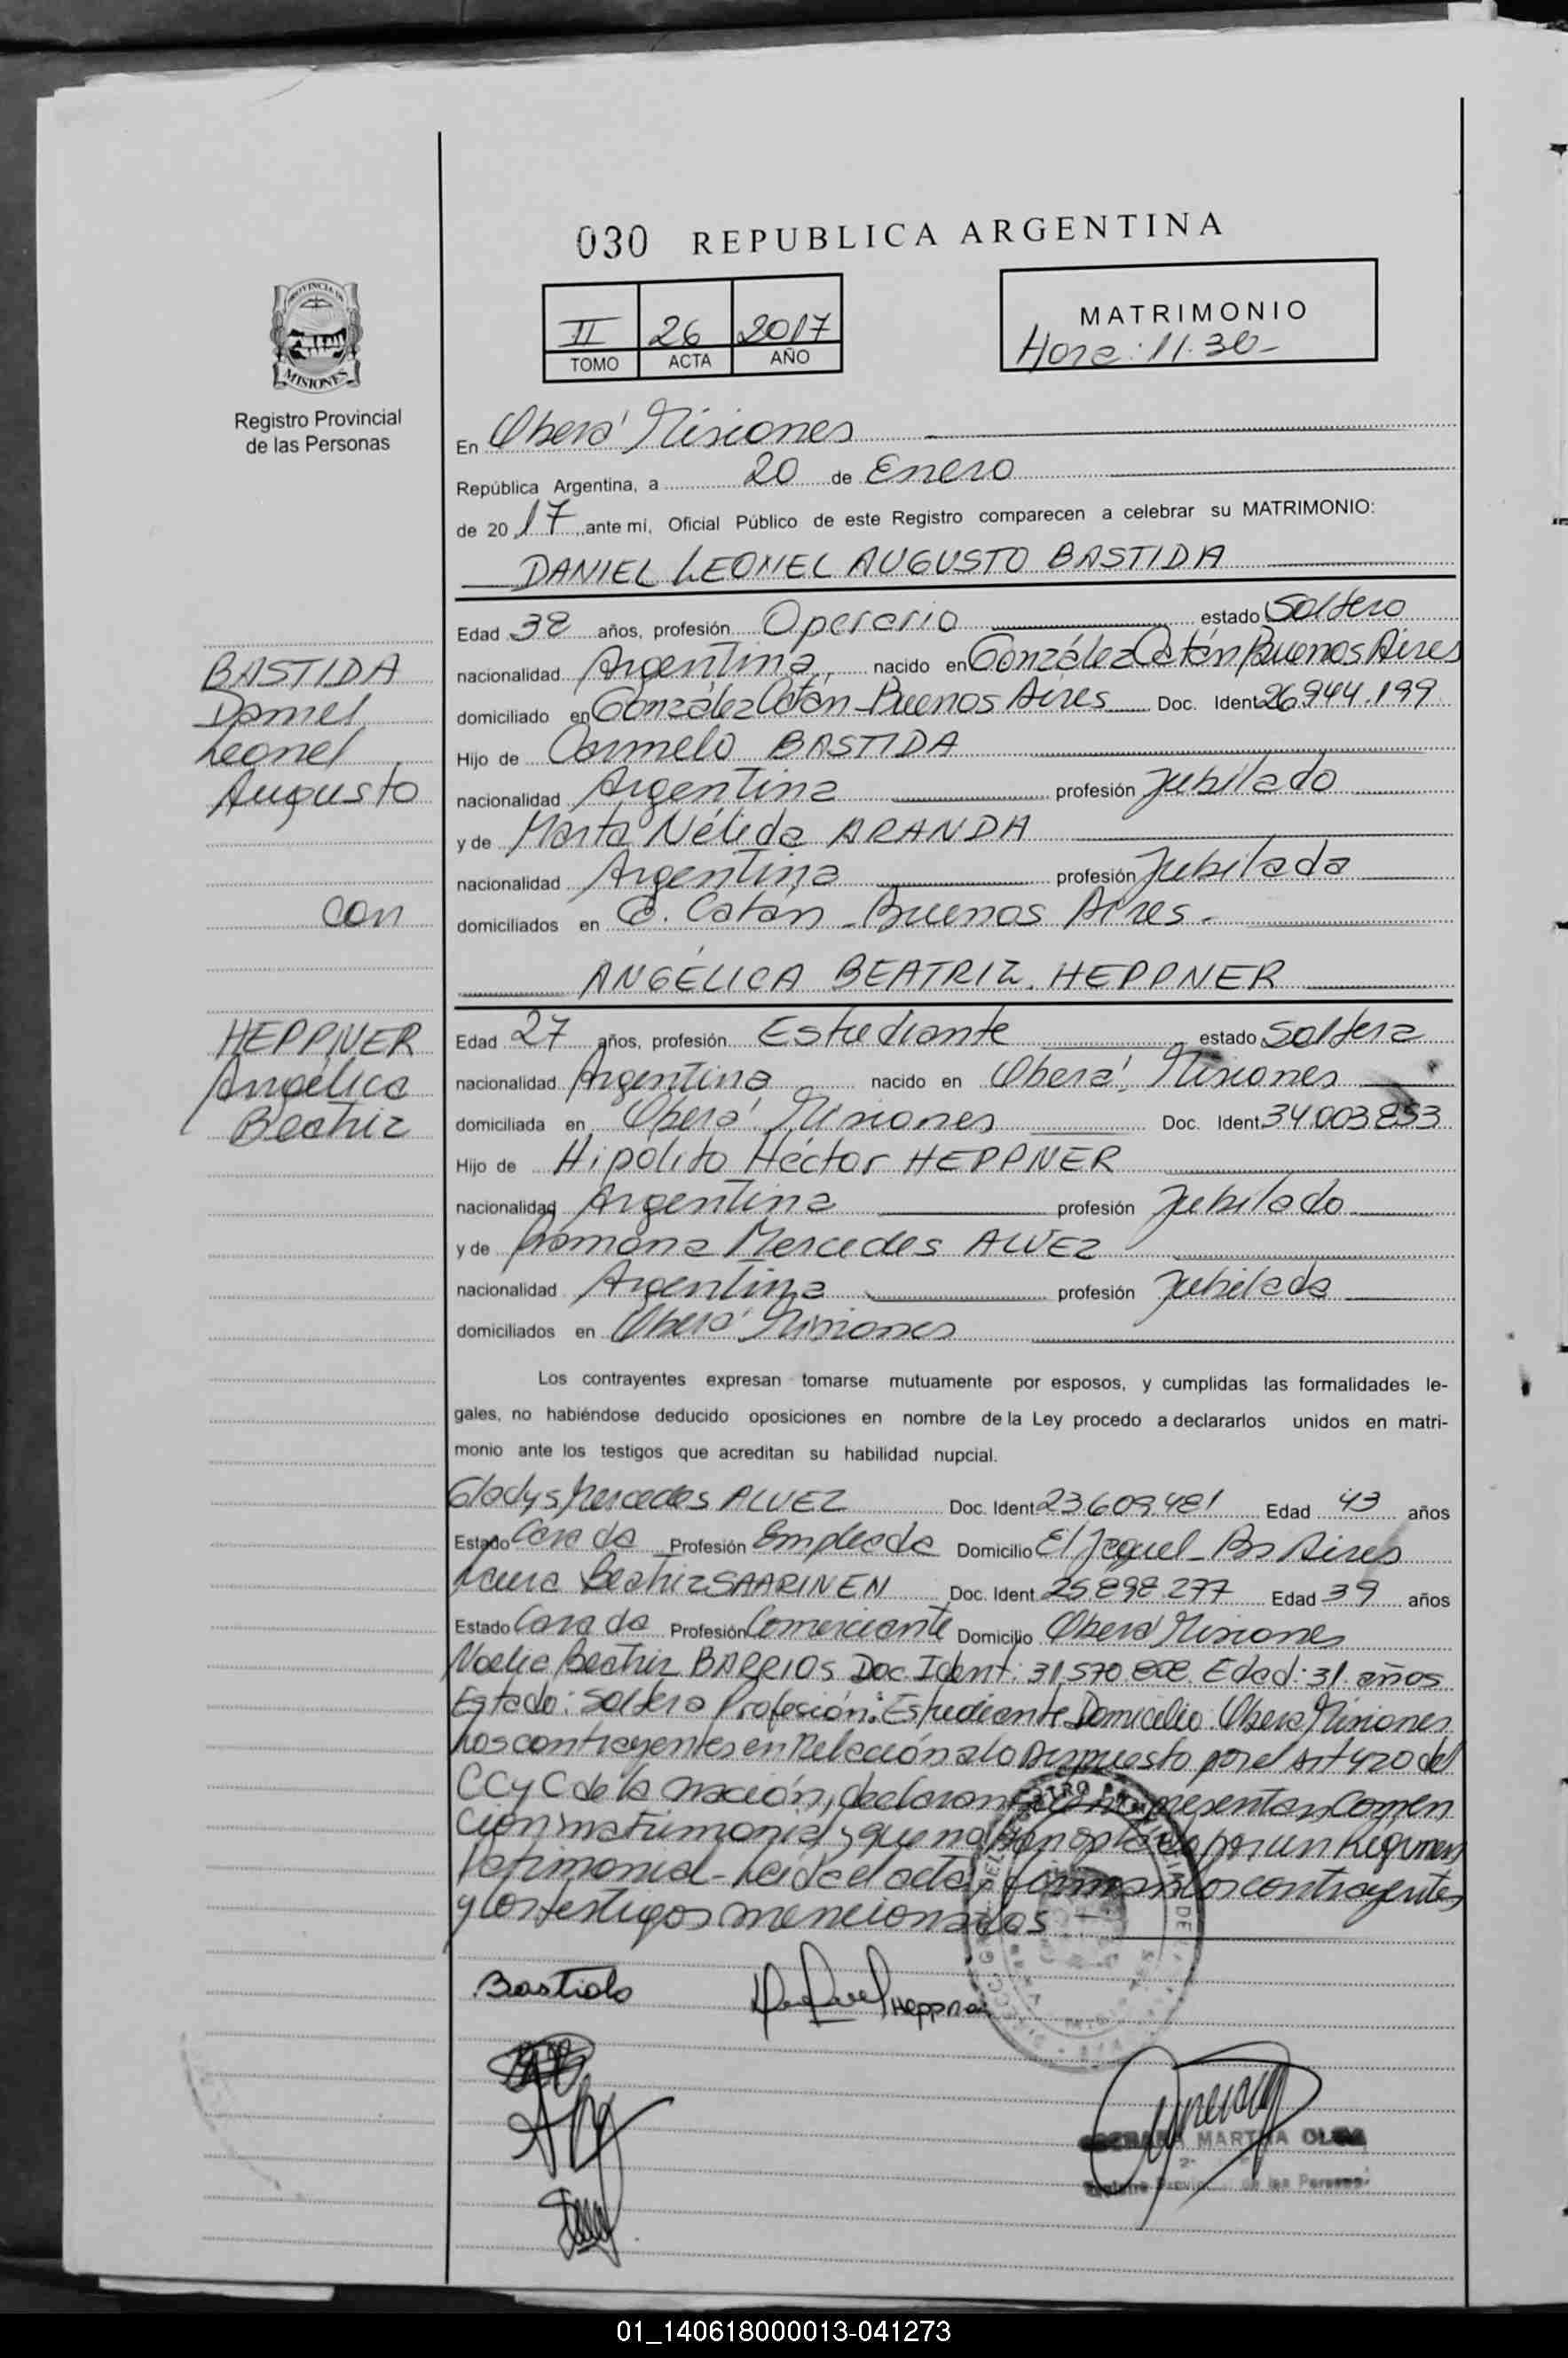 030 REPUBLICA ARGENTINA
II 26 2017
TOMO ACTA AÑO
MATRIMONIO
Hora: 11.30-
PROVINCIA DE
MISIONES
Registro Provincial
de las Personas
En Oberá Misiones
República Argentina, a 20 de Enero
de 2017, ante mí, Oficial Público de este Registro comparecen a celebrar su MATRIMONIO:
DANIEL LEONEL AUGUSTO BASTIDA
Edad 38 años, profesión Operario estado Soltero
nacionalidad Argentina nacido en González Catán Buenos Aires
domiciliado en González Catán-Buenos Aires Doc. Ident 26.944.199
Hijo de Carmelo BASTIDA
nacionalidad Argentina profesión Jubilado
y de Marta Nélida ARANDA
nacionalidad Argentina profesión Jubilada
domiciliados en G. Catán-Buenos Aires-
BASTIDA
Daniel
Leonel
Augusto
con
HEPPNER
Angélica
Beatriz
ANGÉLICA BEATRIZ HEPPNER
Edad 27 años, profesión Estudiante estado Soltera
nacionalidad Argentina nacido en Oberá, Misiones
domiciliada en Oberá, Misiones Doc. Ident 34.003.853
Hijo de Hipólito Héctor HEPPNER
nacionalidad Argentina profesión Jubilado
y de Ramona Mercedes ALVEZ
nacionalidad Argentina profesión Jubilada
domiciliados en Oberá Misiones
Los contrayentes expresan tomarse mutuamente por esposos, y cumplidas las formalidades le-
gales, no habiéndose deducido oposiciones en nombre de la Ley procedo a declararlos unidos en matri-
monio ante los testigos que acreditan su habilidad nupcial.
Gladys Mercedes ALVEZ Doc. Ident 23.609.481 Edad 43 años
Estado Casada Profesión Empleada Domicilio El Jagüel-Bs Aires
Laura Beatriz SAARINEN Doc. Ident 25.898.277 Edad 39 años
Estado Casada Profesión Comerciante Domicilio Oberá Misiones
Noelia Beatriz BARRIOS Doc. Ident: 31.570.808. Edad: 31. años
Estado: Soltera Profesión: Estudiante Domicilio: Oberá Misiones
Los contrayentes en Relación a lo Dispuesto por el Art 420 del
CCyC de la nación, declaran que no presentan Conven
ción matrimonial y que no han optado por un Regimen
Patrimonial-Leída el acta, firman los contrayentes
y los testigos mencionados
Bastida
Heppner
MARTHA OLGA
Registro Provincial de las Personas
01_140618000013-041273